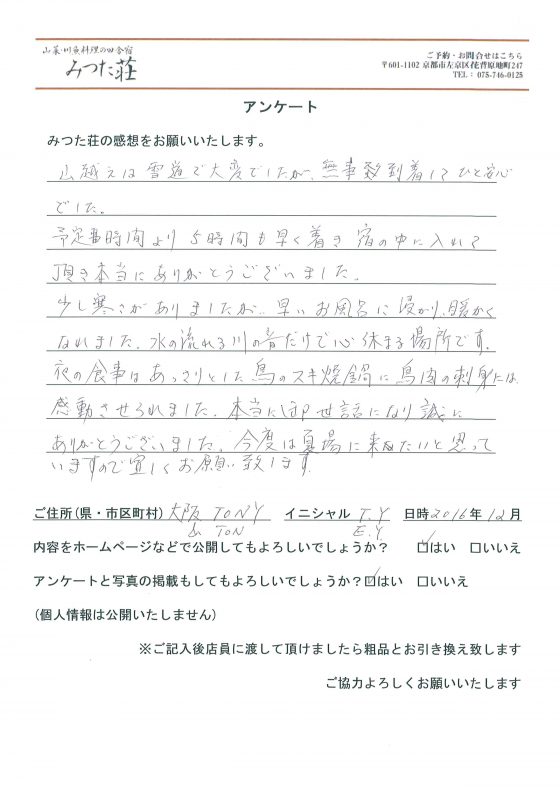 山菜・川魚料理の田舎宿
みつた荘
ご予約・お問合せはこちら
〒601-1102 京都市左京区花背原地町247
TEL : 075-746-0125
アンケート
みつた荘の感想をお願いいたします。
山越えは雪道で大変でしたが、無事到着してひと安心
でした。
予定時間より5時間も早く着き宿の中に入れて
頂き本当にありがとうございました。
少し寒さがありましたが、早いお風呂に浸かり、暖かく
なれました。水の流れる川の音だけで心休まる場所です。
夜の食事はあっさりとした鳥のスキ焼鍋に鳥肉の刺身には、
感動させられました。本当にお世話になり誠に
ありがとうございました。今度は夏場に来たいと思って
いますので宜しくお願い致します。
ご住所(県・市区町村) 大阪 TONY & TON イニシャル T.Y E.Y. 日時2016年12月
内容をホームページなどで公開してもよろしいでしょうか? ☑はい □いいえ
アンケートと写真の掲載もしてもよろしいでしょうか?☑はい □いいえ
(個人情報は公開いたしません)
※ご記入後店員に渡して頂けましたら粗品とお引き換え致します
ご協力よろしくお願いいたします